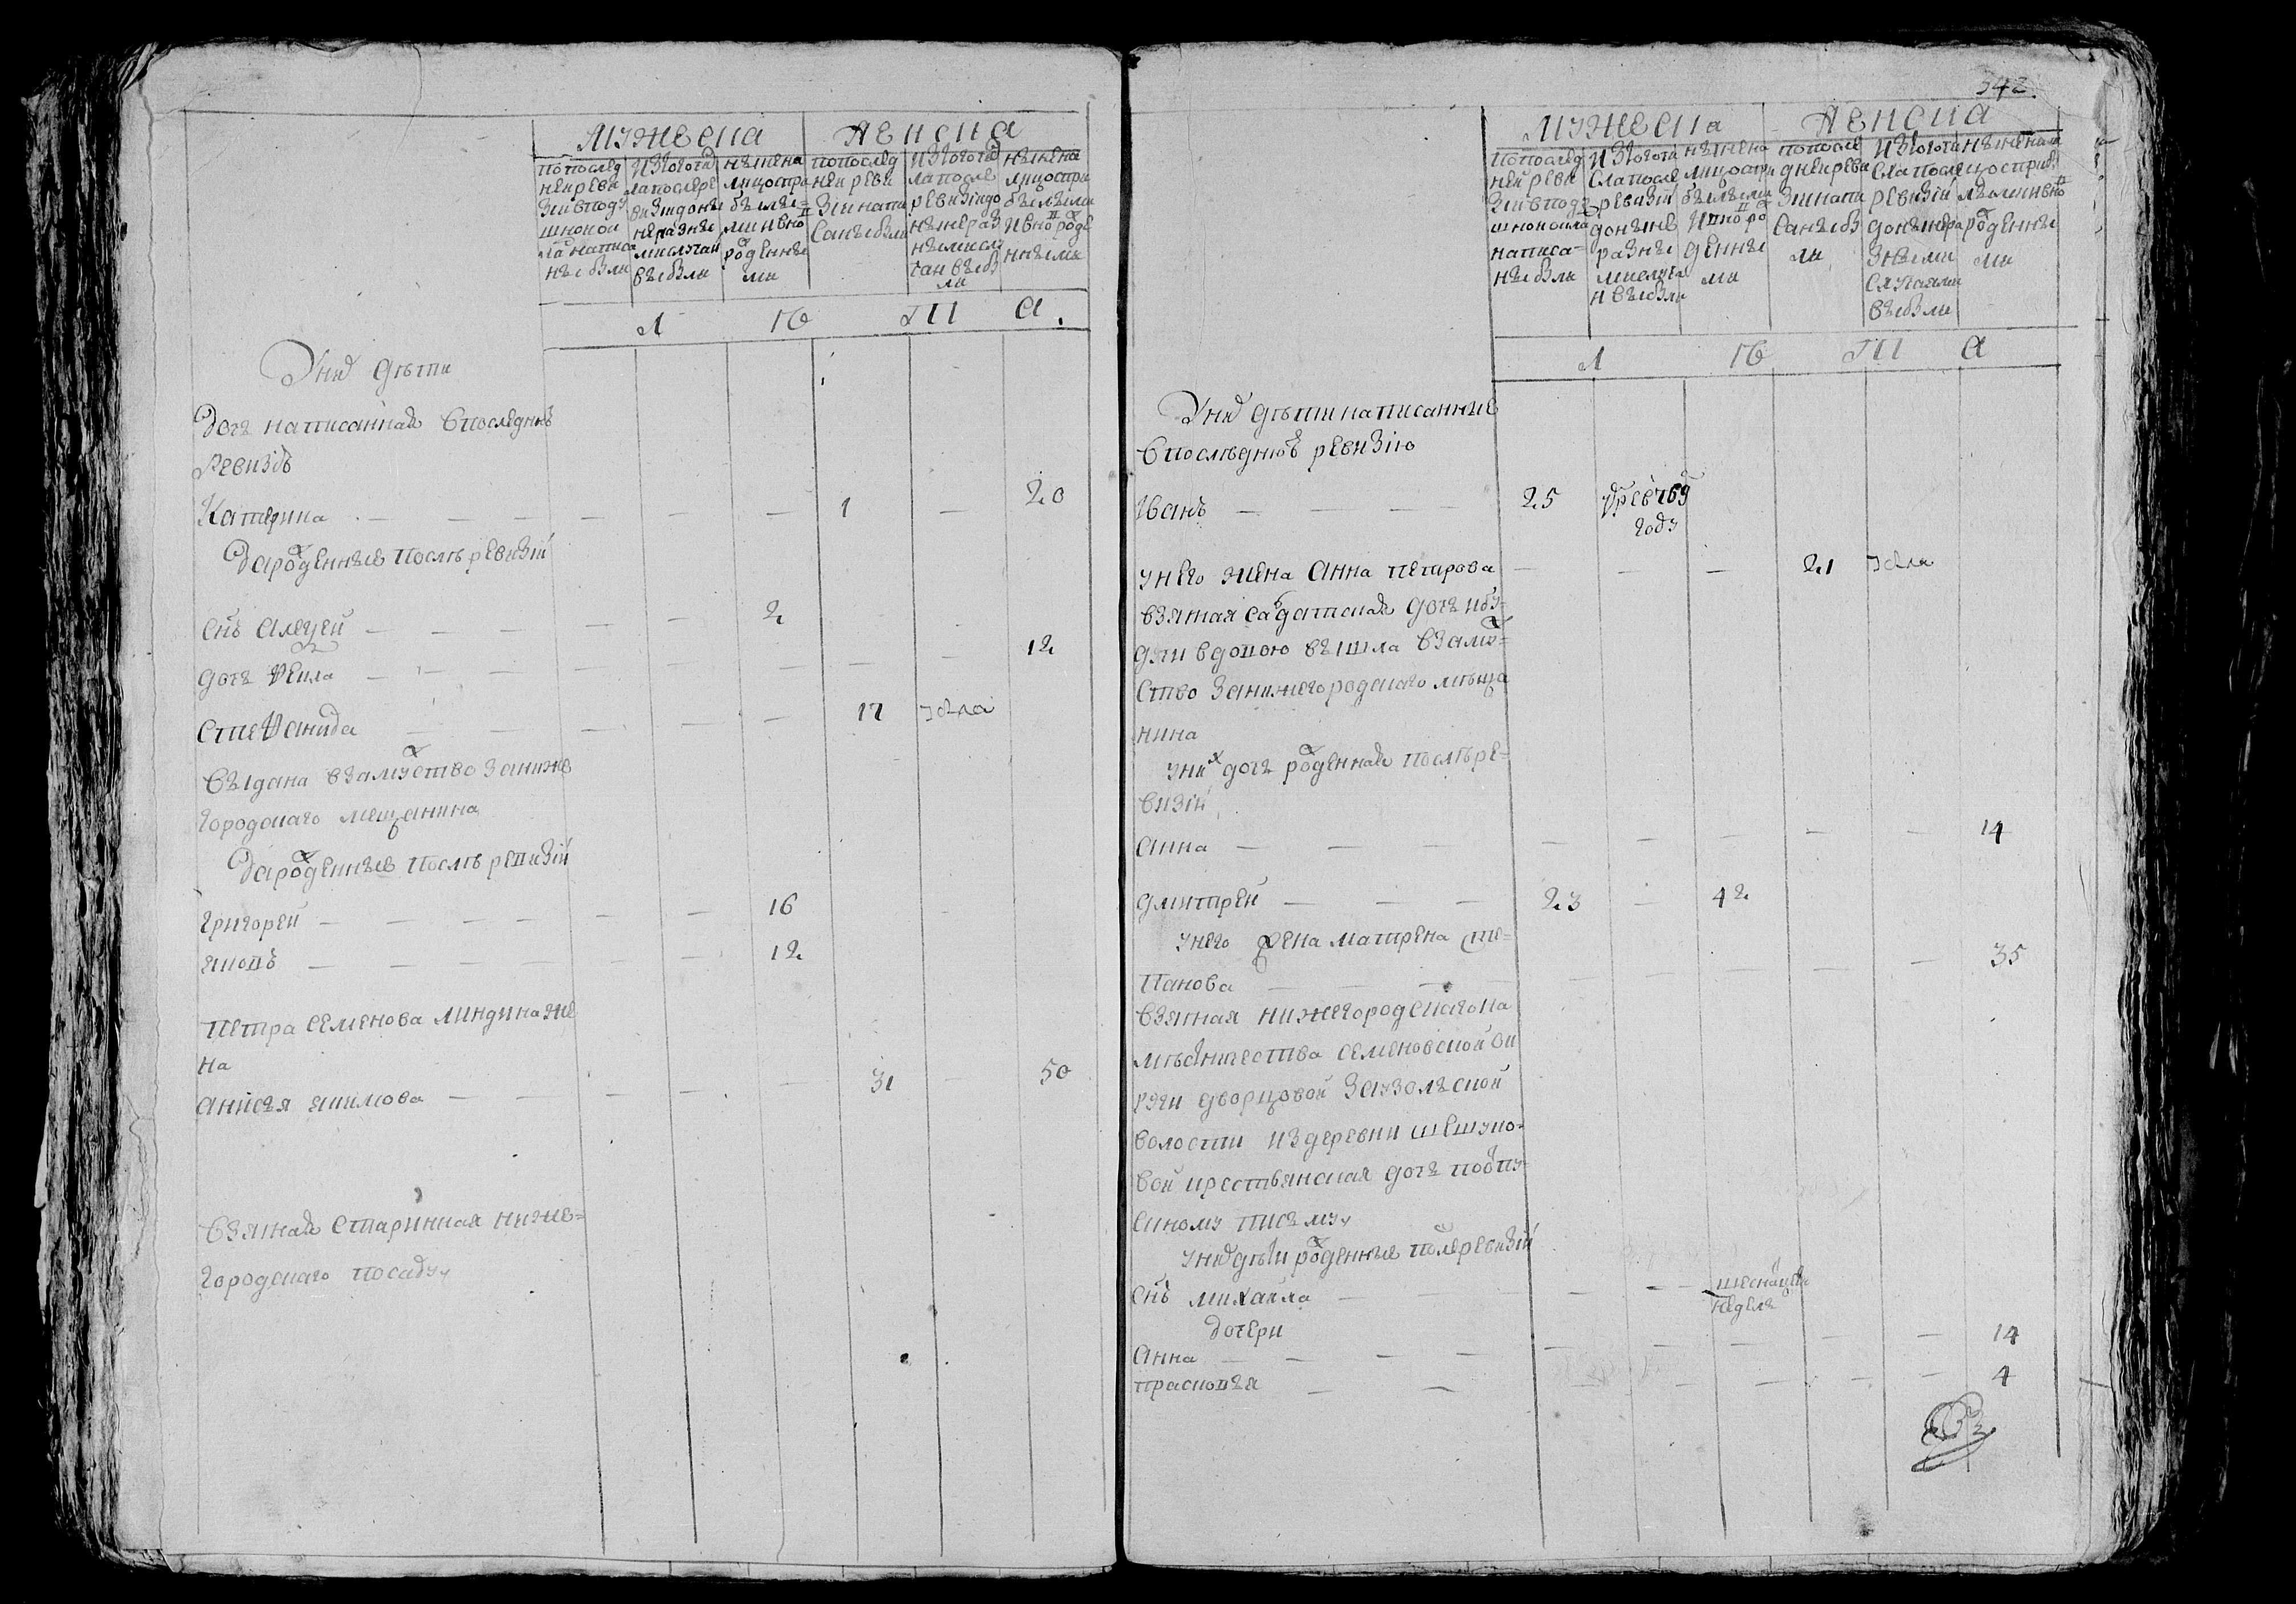 мужеска
женска
попослед
ней реви
зии вподу
шной ок
лад написа
ны были
изтого
ла после ре
визии до ны
не разны
ми случаи
выбыли
ныне на
лицо с при
былыми
и вновь
рожденны
ми
попослед
ней реви
зии напи
саны были
изтого
ла после
ревизии до
ныне раз
ными слу
чаи выбы
ли
ныне на
лицо с при
былыми
и вновь рожде
нными
л ѣ т а
У них дѣти
Дочь написанная впоследней
Ревизѣ
Катерина 1 20
Да рожденные послѣ ревизіи
снъ алеѯей 2
дочь Фекла 12
степанида 17 гдала
выдана взамуство за ниже
городскаго мещанина
Да рожденные послѣ ревизіи
григорей 16
яковъ 12
петра семенова миндина же
на
анисья якимова 31 50
взятая старинная ниже=
городскаго посаду
342.
мужеска
женска
попослед
ней реви
зии вподу
шной оклад
написа=
ны были
изтого
сла после
ревизии
до ныне
разны
ми случа
и выбыли
ныне на
лицо с при
былыми
и вновь ро
жденны
ми
попосле
дней реви
зии напи
саны бы
ли
изтого чи
сла после
ревизии
до ныне ра
зными
случаями
выбыли
ныне на ли
цо с прибы
лыми и вно
рожденны
ми
л ѣ т а
У них дѣти написанные
впослѣднюю ревизію
Иванъ 25 умре в 769
году
у него жена анна петрова 21
взятая салдатская дочь и бу=
дучи вдовою вышла взаму=
ство за нижегородскаго мѣща
нина
у них дочь рожденная послѣ ре=
визіи
анна 14
дмитрей 23 42
у него жена матрена сте=
панова 35
взятая нижегородскаго на
мѣсничества семеновской ок
руги дворцовой заузолской
волости из деревни шешуко=
вой крестьянская дочь по отпу
скному писму
у них дѣти рожденные после ревизіи
снъ михаила шеснацеть
недель
дочери
анна 14
прасковья 4